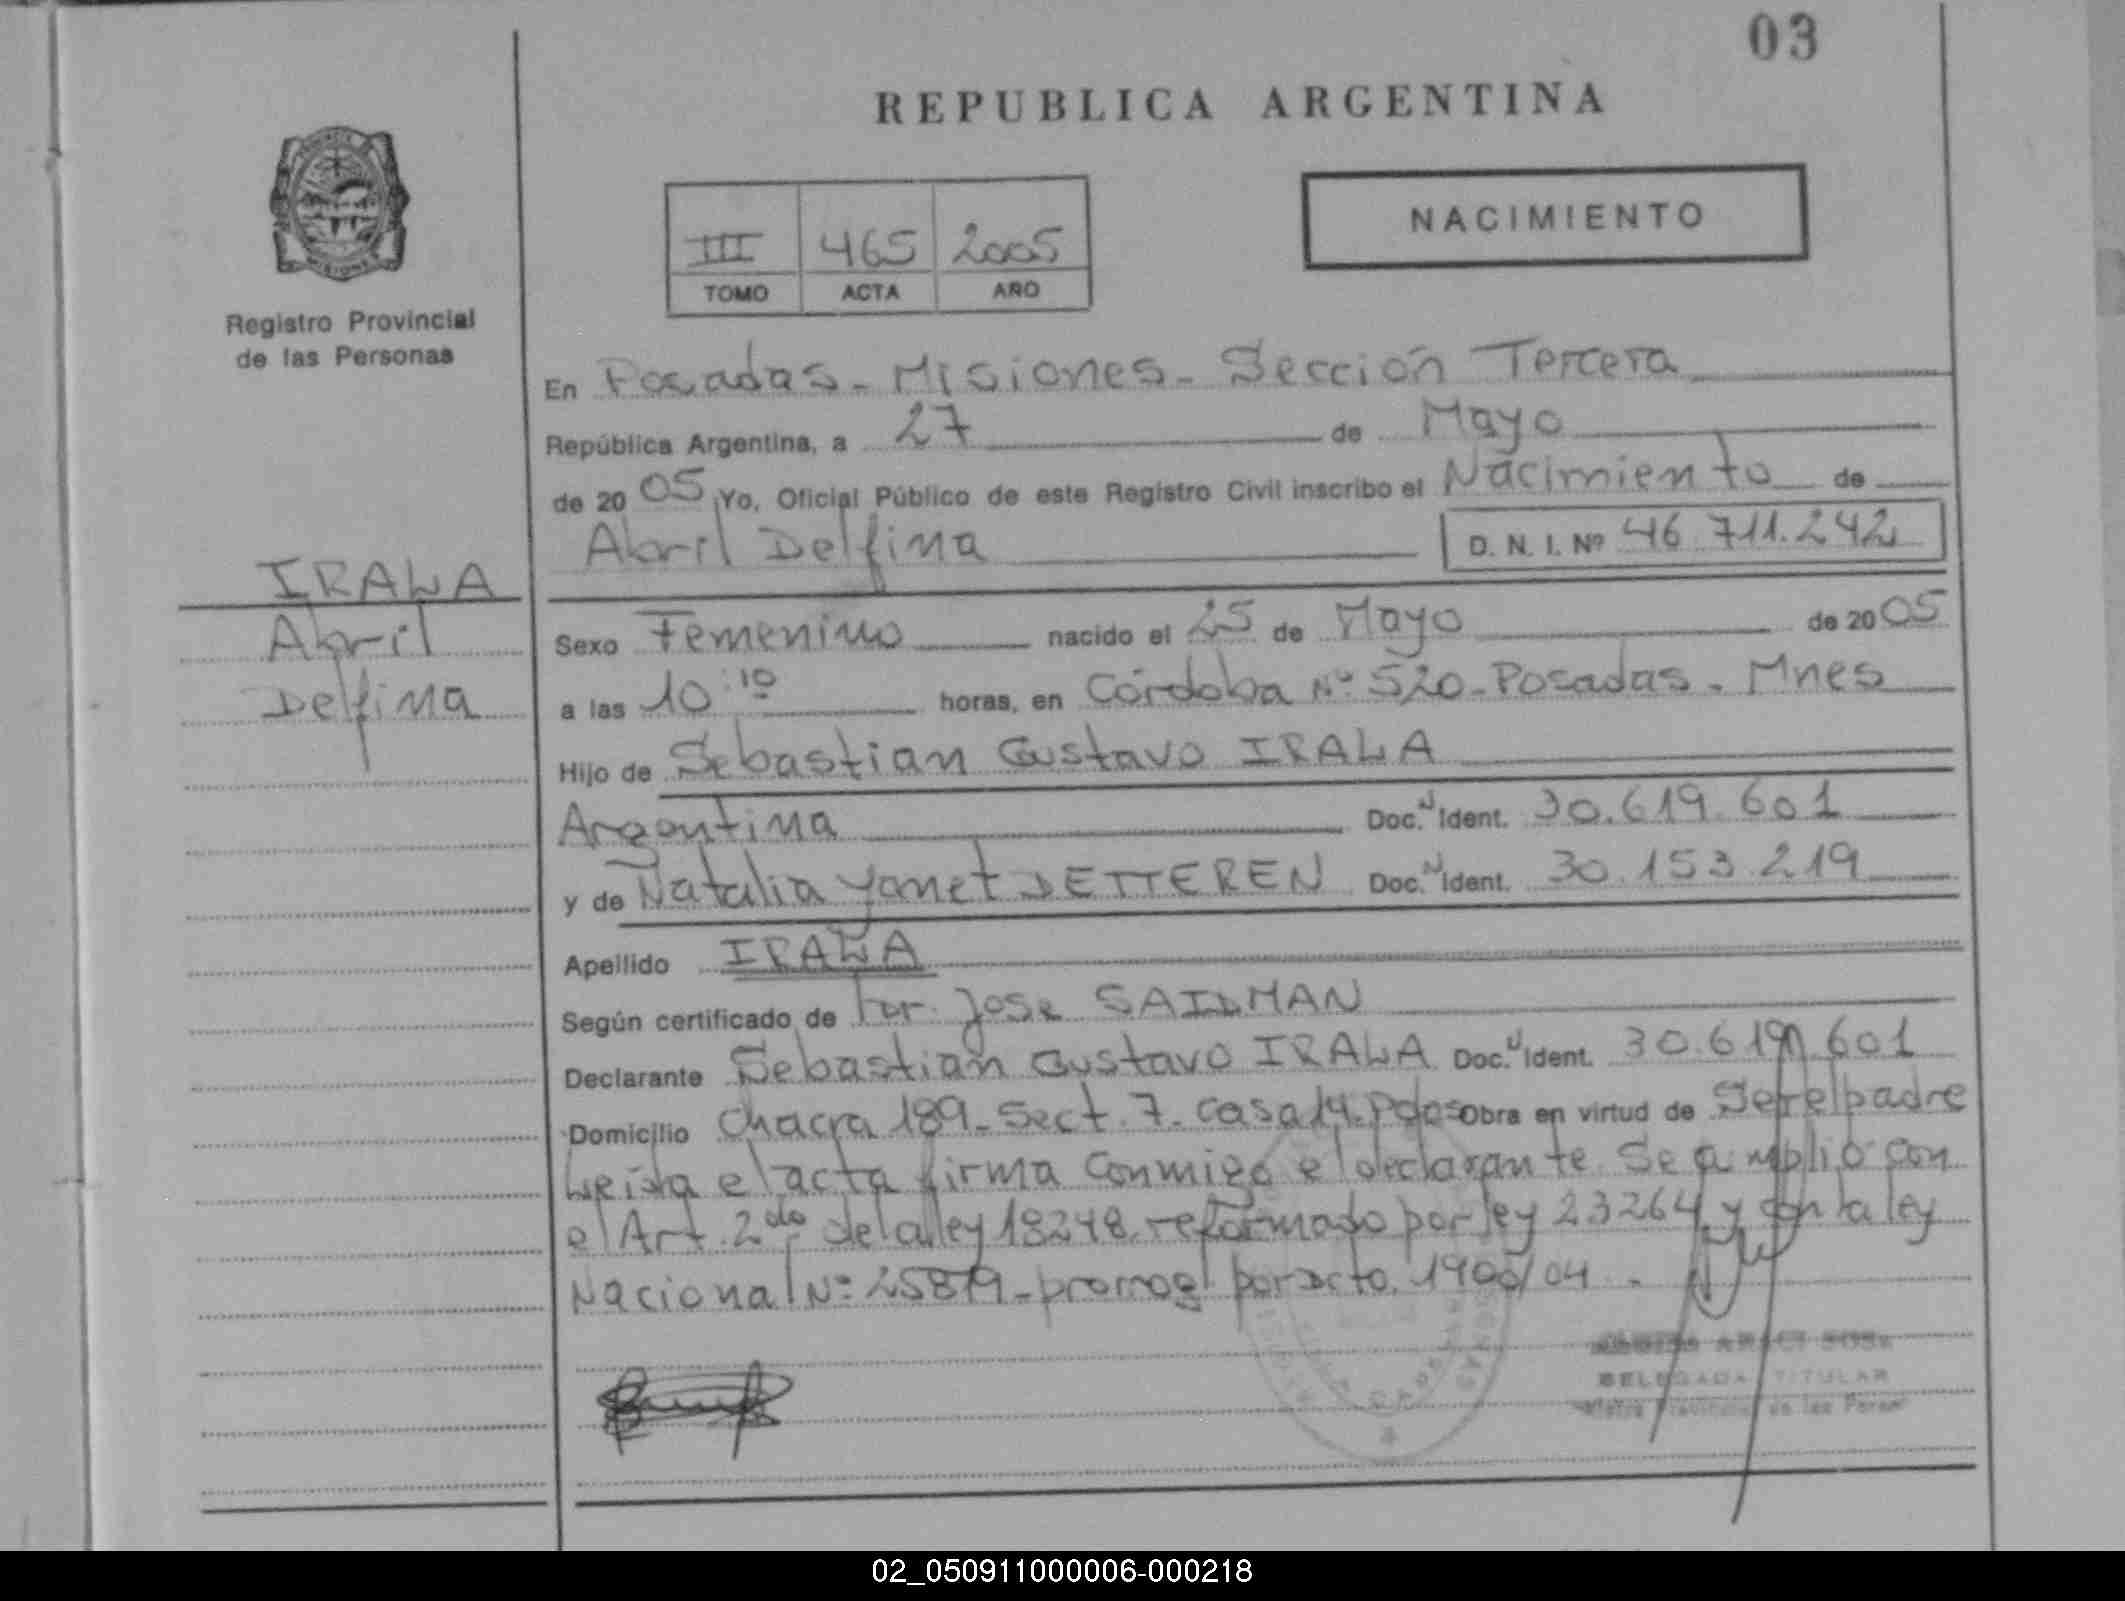 03
REPUBLICA ARGENTINA
NACIMIENTO
III 465 2005
TOMO ACTA AÑO
Registro Provincial
de las Personas
En Posadas - Misiones - Sección Tercera
República Argentina, a 27 de Mayo
de 2005 Yo, Oficial Público de este Registro Civil inscribo el Nacimiento de
Abril Delfina D. N. I. Nº 46.711.242
IRALA
Abril
Delfina
Sexo Femenino nacido el 25 de Mayo de 2005
a las 10:10 horas, en Córdoba Nº 520 - Posadas - Mnes
Hijo de Sebastian Gustavo IRALA
Argentina Doc. Ident. 30.619.601
y de Natalia Yanet DETTEREN Doc. Ident. 30.153.219
Apellido IRALA
Según certificado de José SAIDMAN
Declarante Sebastian Gustavo IRALA Doc. Ident. 30.619.601
Domicilio Chacra 189 - Sect. 7 - Casa 14 - Pdas Obra en virtud de Ser el padre
Leída el acta firma conmigo el declarante. Se amplió con
el Art. 2do de la ley 18248 reformado por ley 23264 y con la ley
Nacional Nº 25819 - prorrog por Dcto. 1900/04 -
DELEGADA TITULAR
02_050911000006-000218